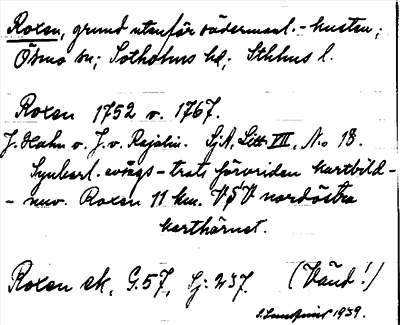 Roxen, grund utanför södermanl.-kusten;
Ösmo sn; Sotholms hd; Sthlms l.
Roxen 1752 o. 1767.
J. Hahn o. J. v. Rajalin. SjA, Litt VII, No 18.
Synbarl. avsågs - trots förvriden kartbild -
- nuv. Roxen 11 km. VSV nordöstra
karthörnet.
Roxen sk, G.57, Sj: 237. (Vänd!)
1939.